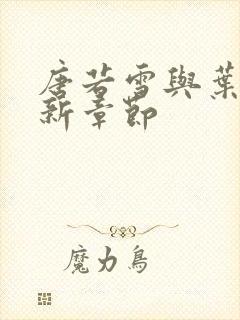 唐若雪與葉
新章節
魔力鳥